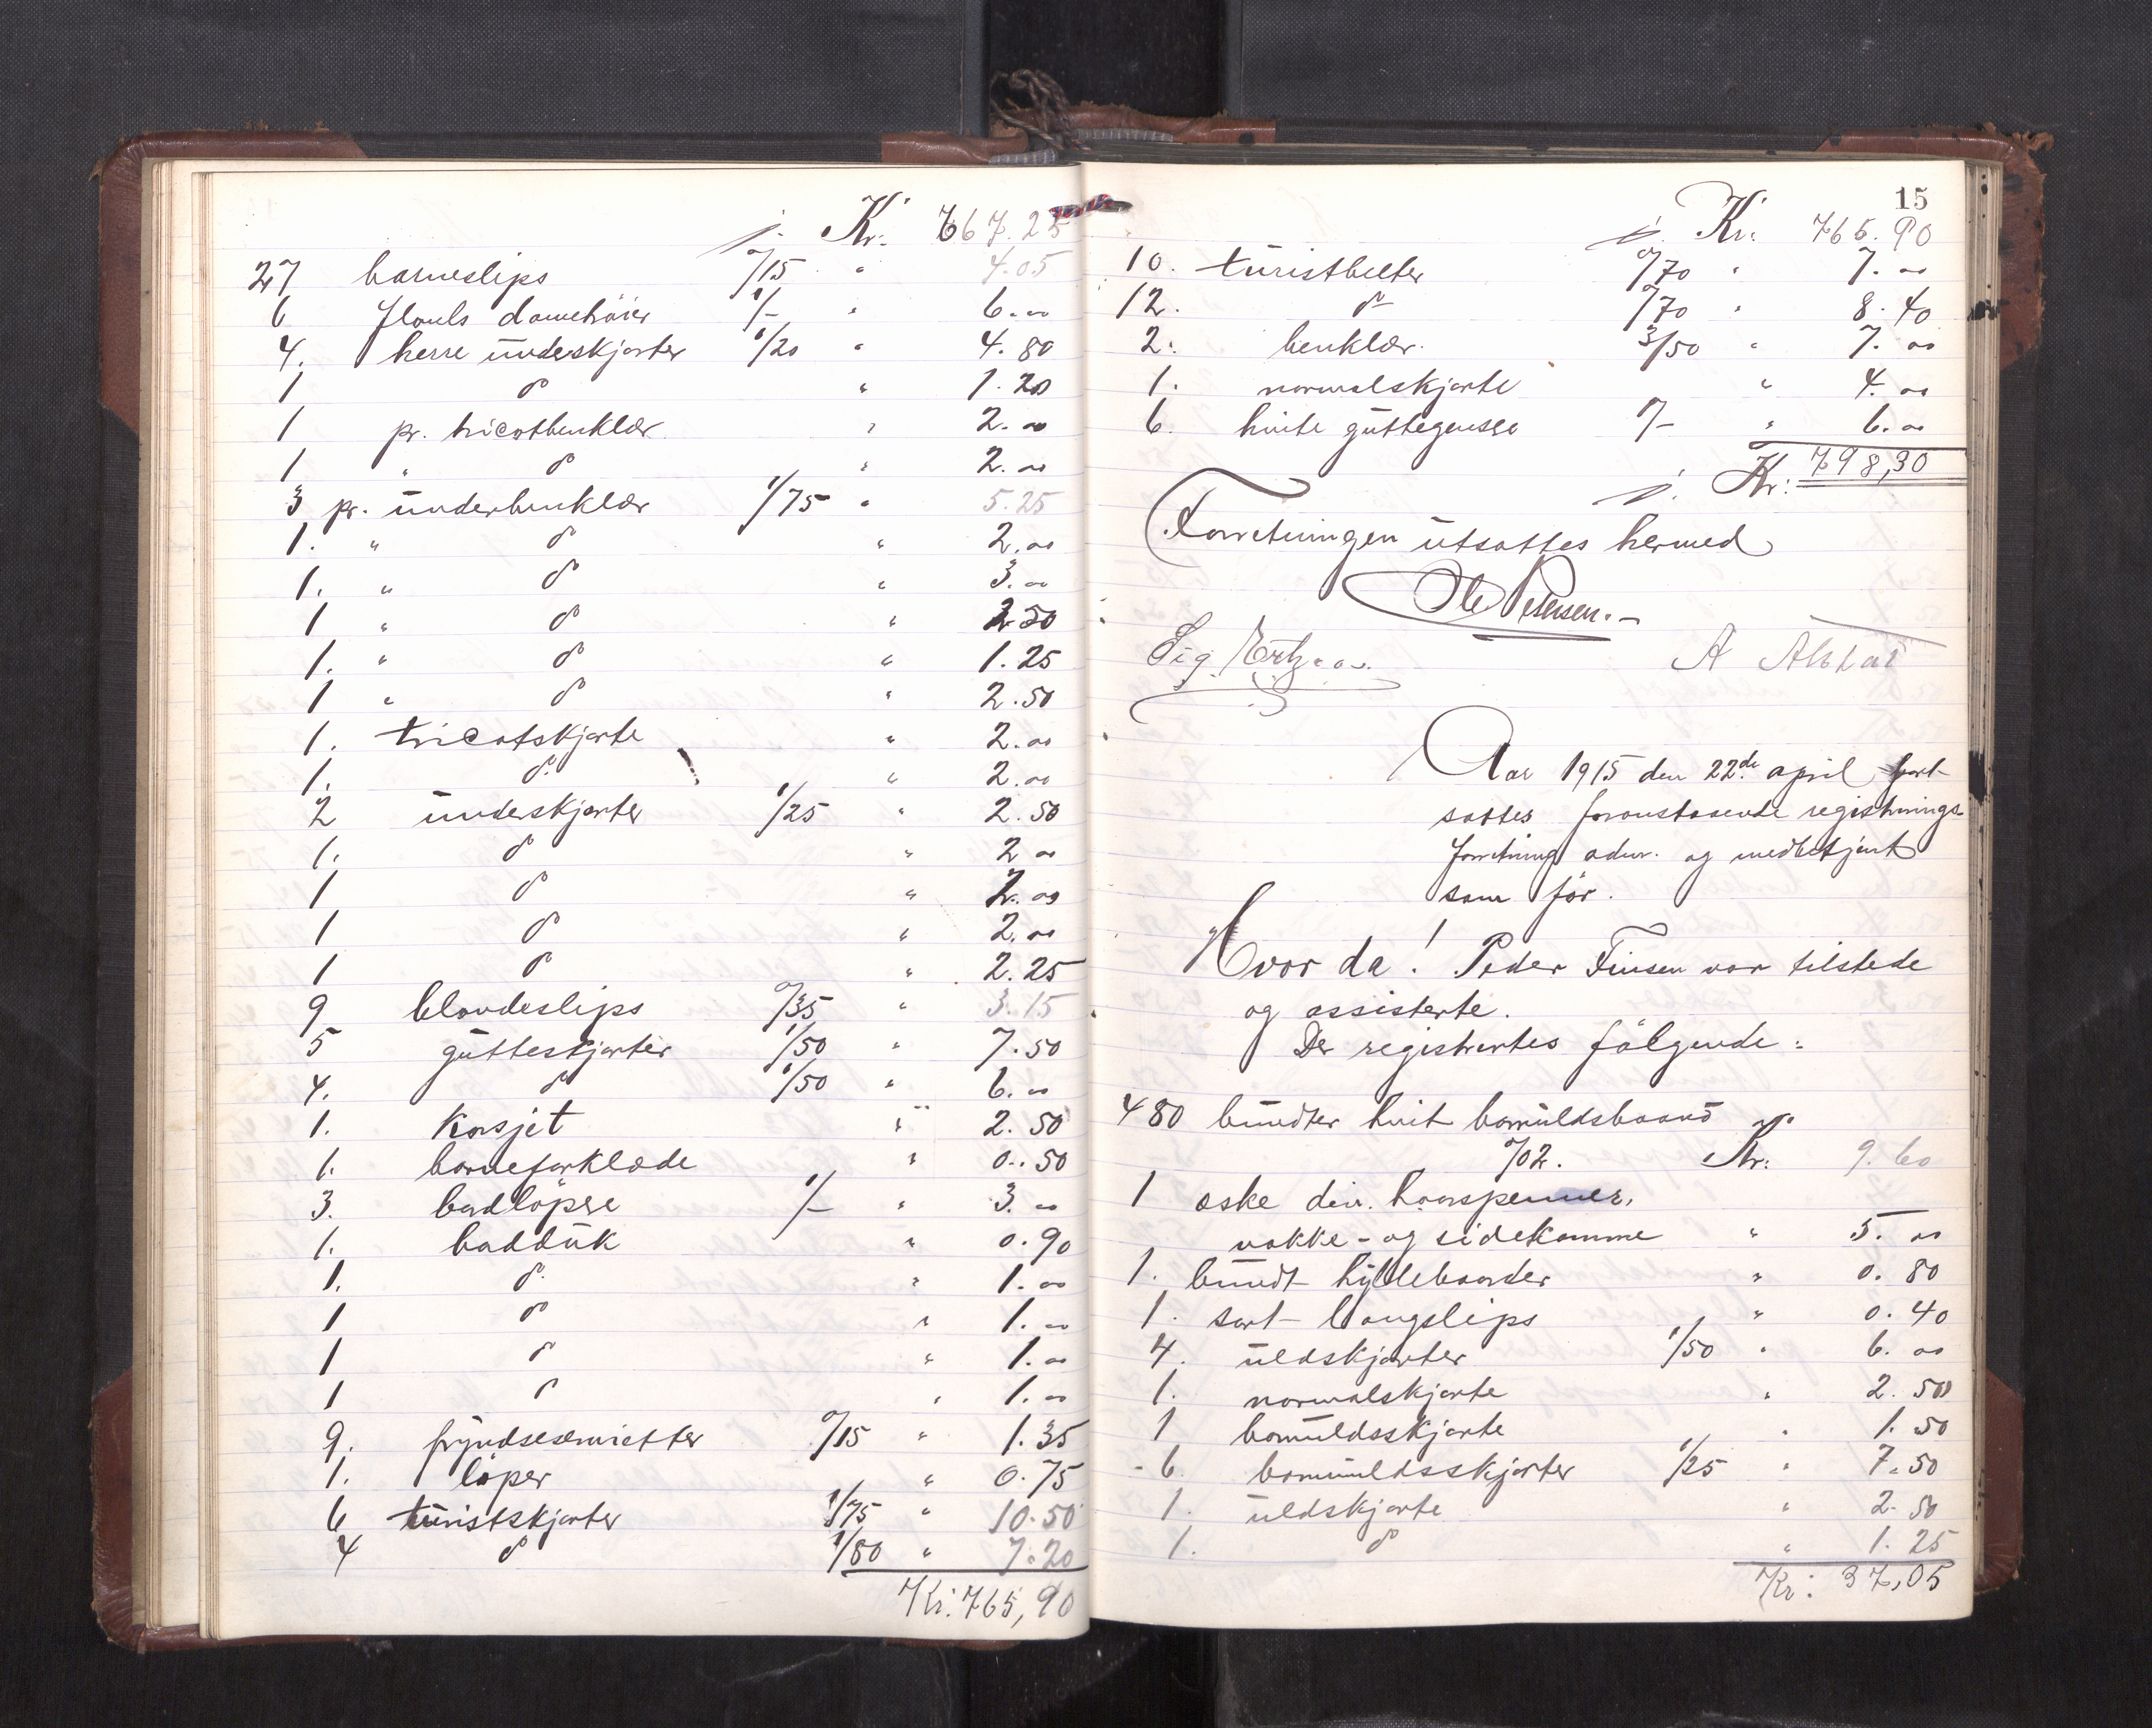 Kr. 667.25
27 barneslips 0/15 " 4.05
6 damehöier 1/- " 6.00
4. herre underskjorter 1/20 " 4.80
1 do " 1.20
1 pr. tricotbenklær " 2.00
1 " do " 2.00
3 pr. underbenklær 1/75 " 5.25
1. " do " 2.00
1. " do " 3.00
1 " do " 2.50
1. " do " 1.25
1 " do " 2.50
1. tricotskjorte " 2.00
1. do " 2.00
2 underskjorter 1/25 " 2.50
1. do " 2.00
1 do " 2.00
1 do " 2.00
1 do " 2.25
9 blondeslips 0/35 " 3.15
5 gutteskjorter 1/50 " 7.50
4. do 1/50 " 6.00
1. Korsjet " 2.50
1. barneforklæde " 0.50
3. bordlöpere 1/- " 3.00
1. bordduk " 0.90
1. do " 1.00
1 do " 1.00
1 do " 1.00
1 do " 1.00
9. 0/15 " 1.35
1. löper " 0.75
6 turistskjorter 1/75 " 10.50
4 do 1/80 " 7.20
Kr. 765,90
15
Kr: 765.90
10. turistbelter 0/70 " 7.00
12. do 0/70 " 8.40
2. benklær. 3/50 " 7.00
1. normalskjorte " 4.00
6. hvite guttegensere 1/- " 6.00
Kr: 798,30
Forretningen utsattes hermed
Ole Petersen.-
Sig. A
Aar 1915 den 22de april fort-
sattes foranstaaende registrerings-
forretning adm. og medbetjent
som för.
Hvor da! Peder Finsen var tilstede
og assisterte.
Der registrertes fölgende:
480 bundter hvit bomuldsbaand
0/02. Kr: 9.60
1 eske div. haarspenner,
nakke- og sidekamme " 5.00
1. bundt hylleborder " 0.80
1. sort langslips " 0.40
4. uldskjorter 1/50 " 6.00
1. normalskjorte " 2.50
1 bomuldsskjorte " 1.50
6. bomuldsskjorter 1/25 " 7.50
1. uldskjorte " 2.50
1. do " 1.25
Kr: 37,05